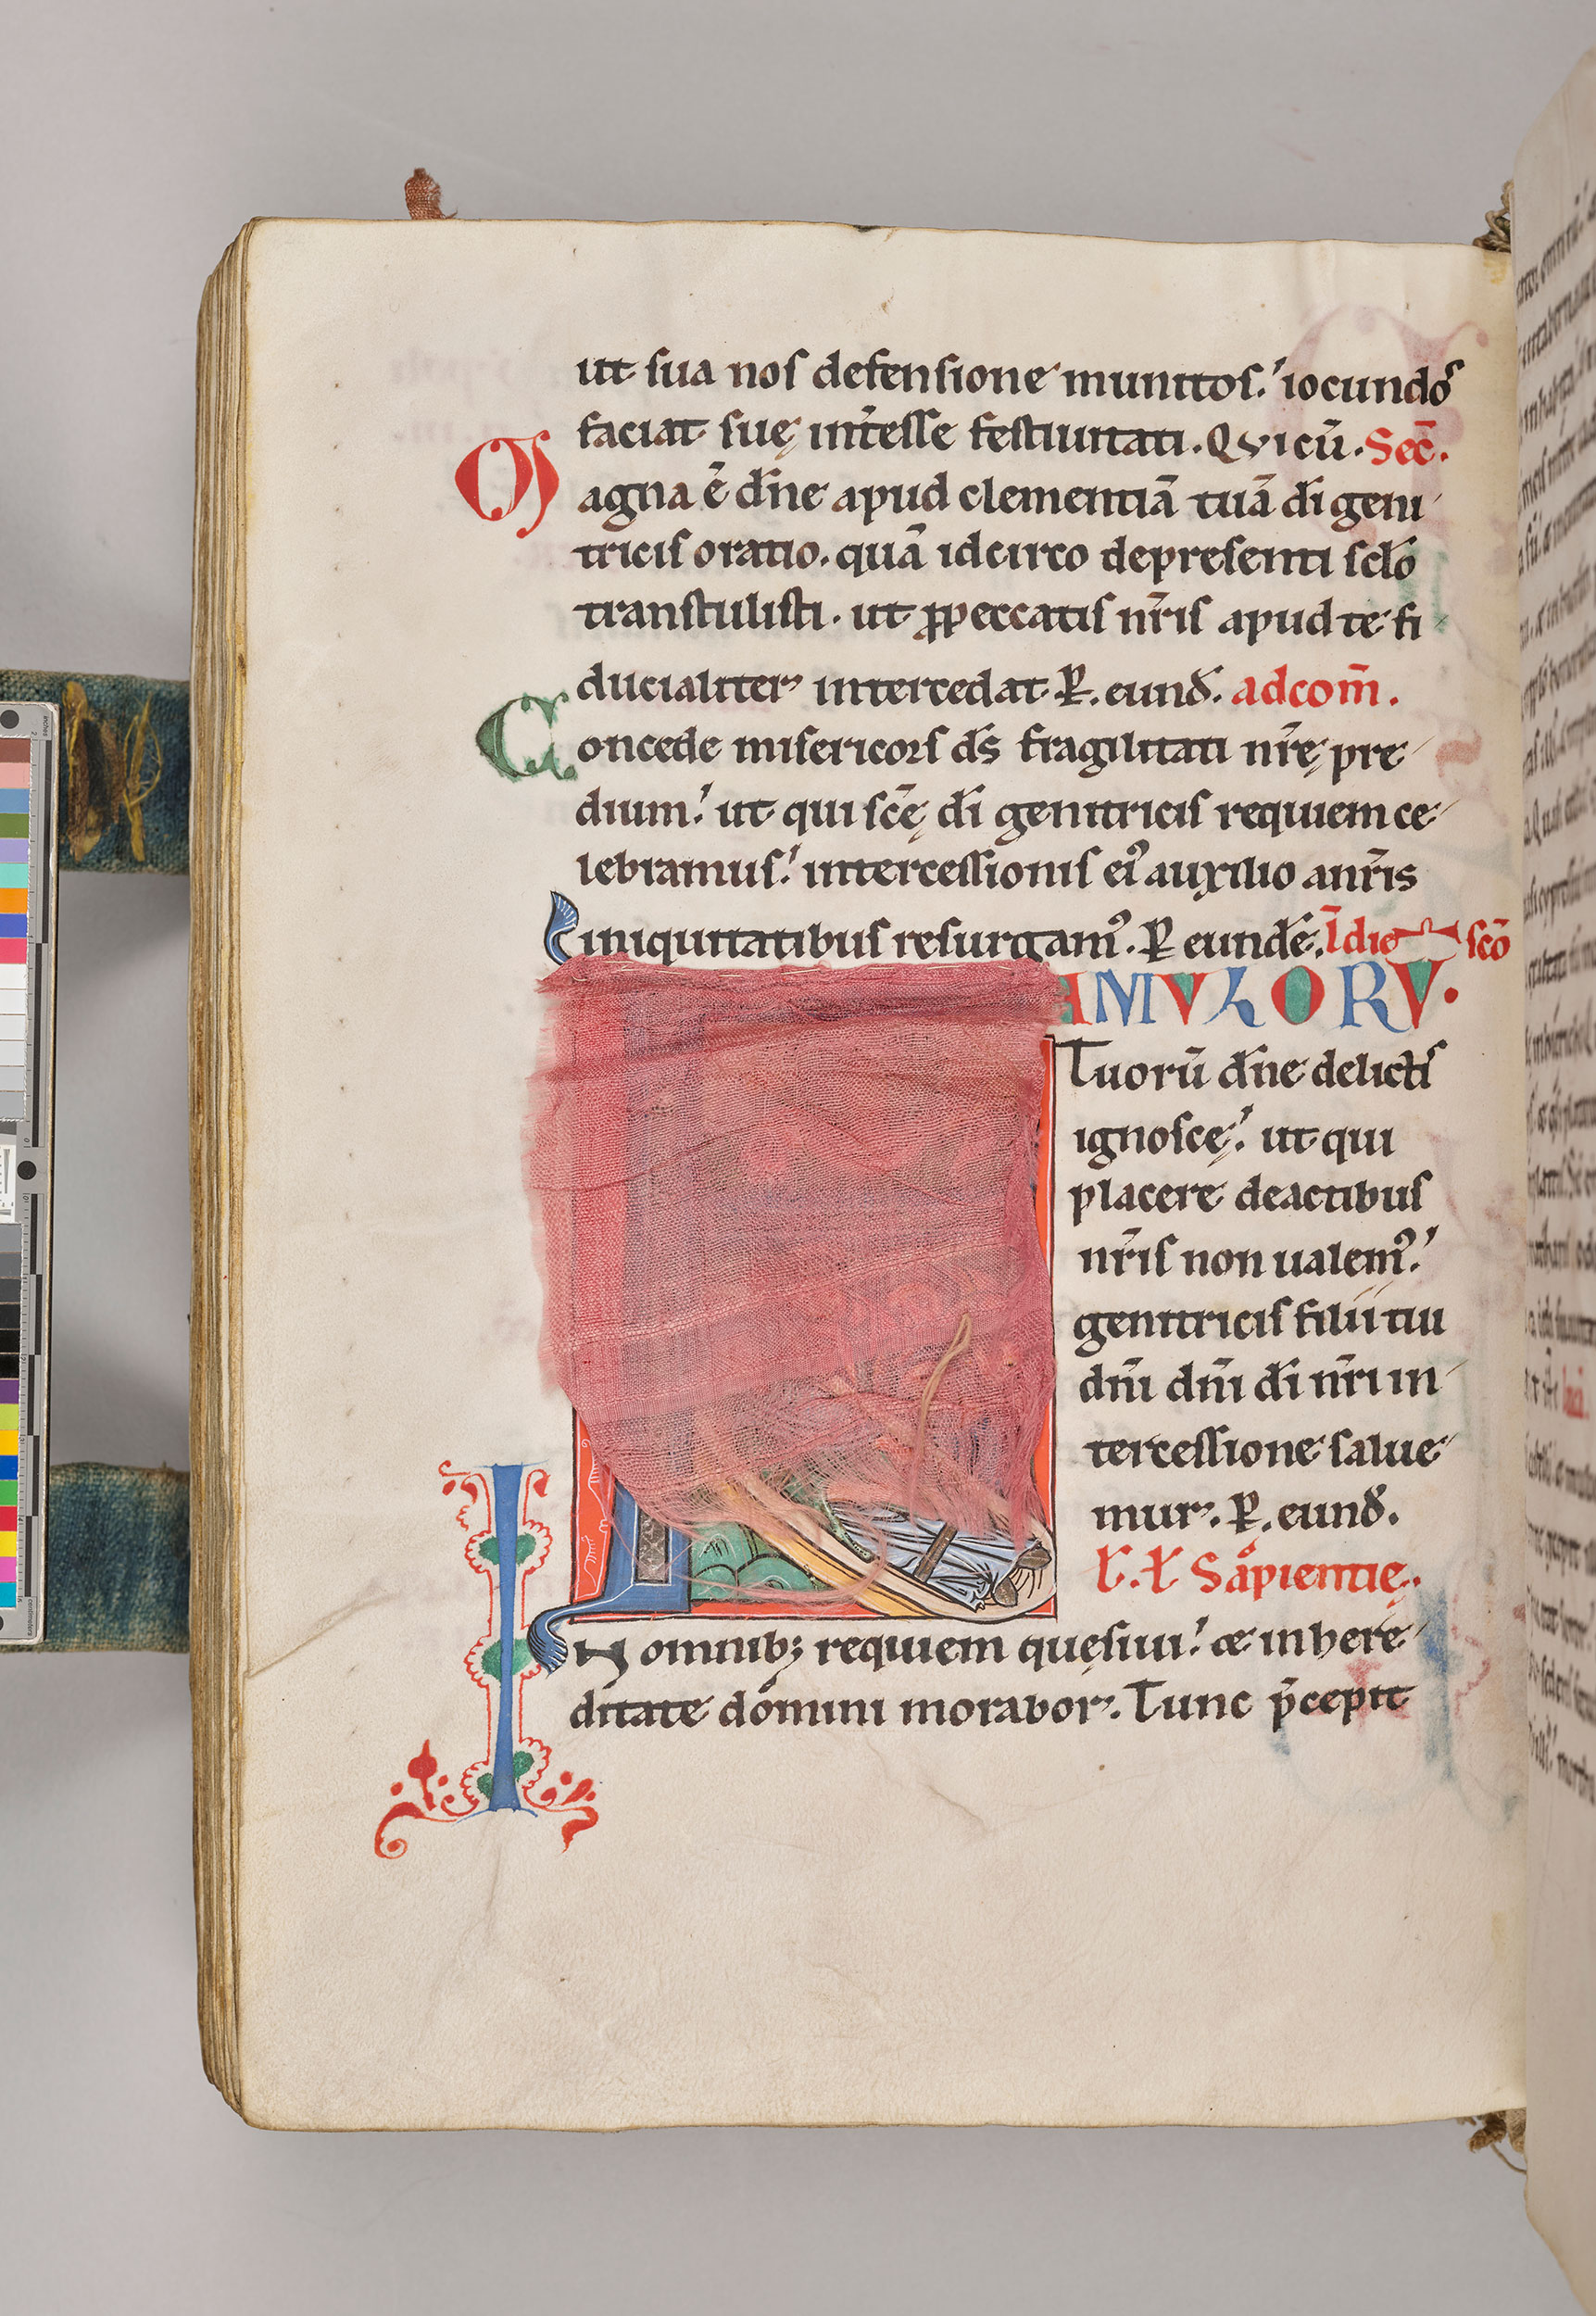 ut sua nos defensione munitos. iocundos
faciat suę int̄esse festiuitati. Qui cū. Sec̄.
Magna ē dn̄e apud clementiā tuā dī geni
tricis oratio. quā idcirco depresenti sclō
transtulisti. ut ꝓ peccatis nr̄is apud te fi
ducialiter intercedat. P̲. eund̄. adcom̄.
Concede misericors ds̄ fragilitati nr̄ę pre
dium. ut qui scę̄ dī genitricis requiem ce
lebramus. intercessionis eiꝰ auxilio anr̄is
iniquitatibus resurgamꝰ. P̲ eundē. In die scō
AMULORU.
Tuorū dn̄e delictis
ignosce. ut qui
placere deactibus
nr̄is non ualemꝰ.
genitricis filii tui
dn̄i dn̄i dī nr̄i in
tercessione salue
mur. P̲. eund̄.
L̄. L̄ Sapientię.
IN omnibꝫ requiem quęsiui. & in here
ditate domini morabor. Tunc p̄cepit